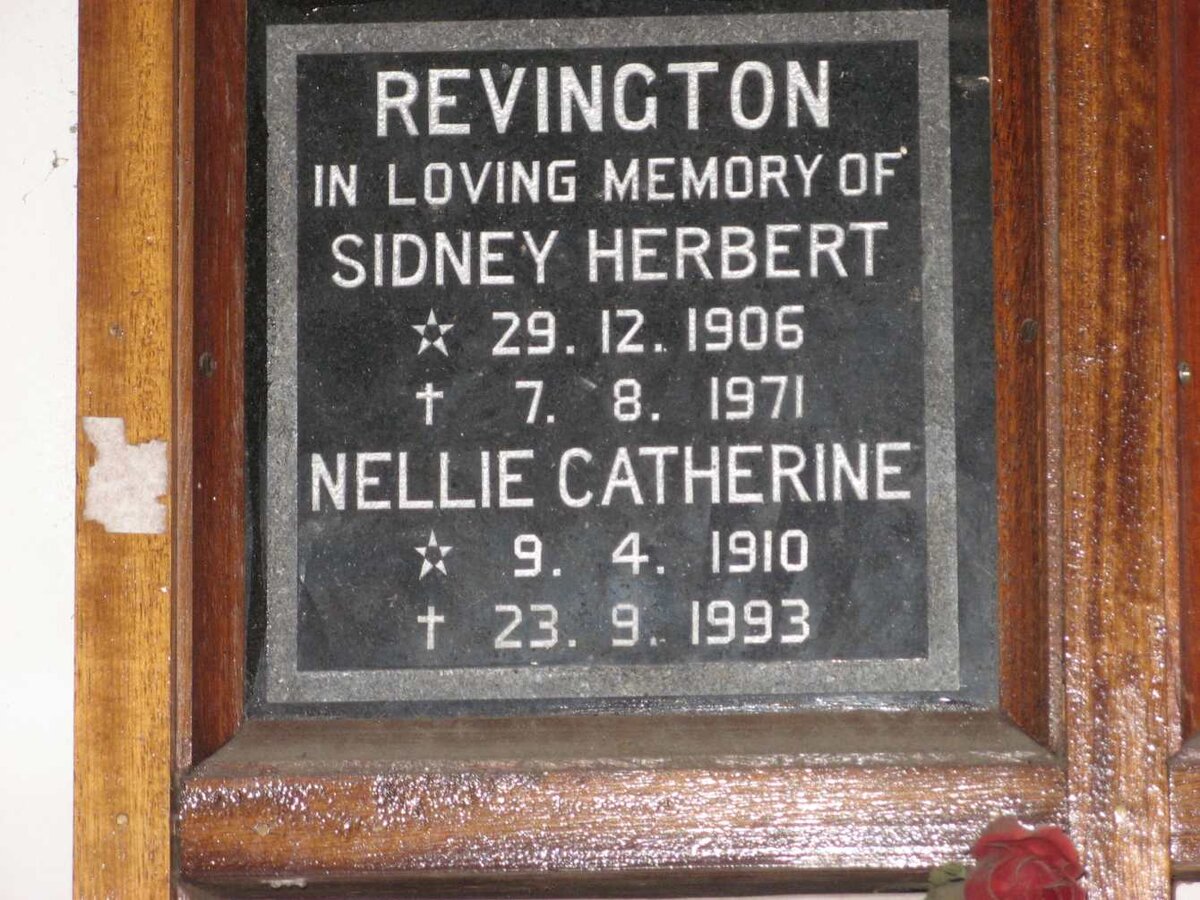 REVINGTON
IN LOVING MEMORY OF
SIDNEY HERBERT
☆ 29. 12. 1906
† 7. 8. 1971
NELLIE CATHERINE
☆ 9. 4. 1910
† 23. 9. 1993